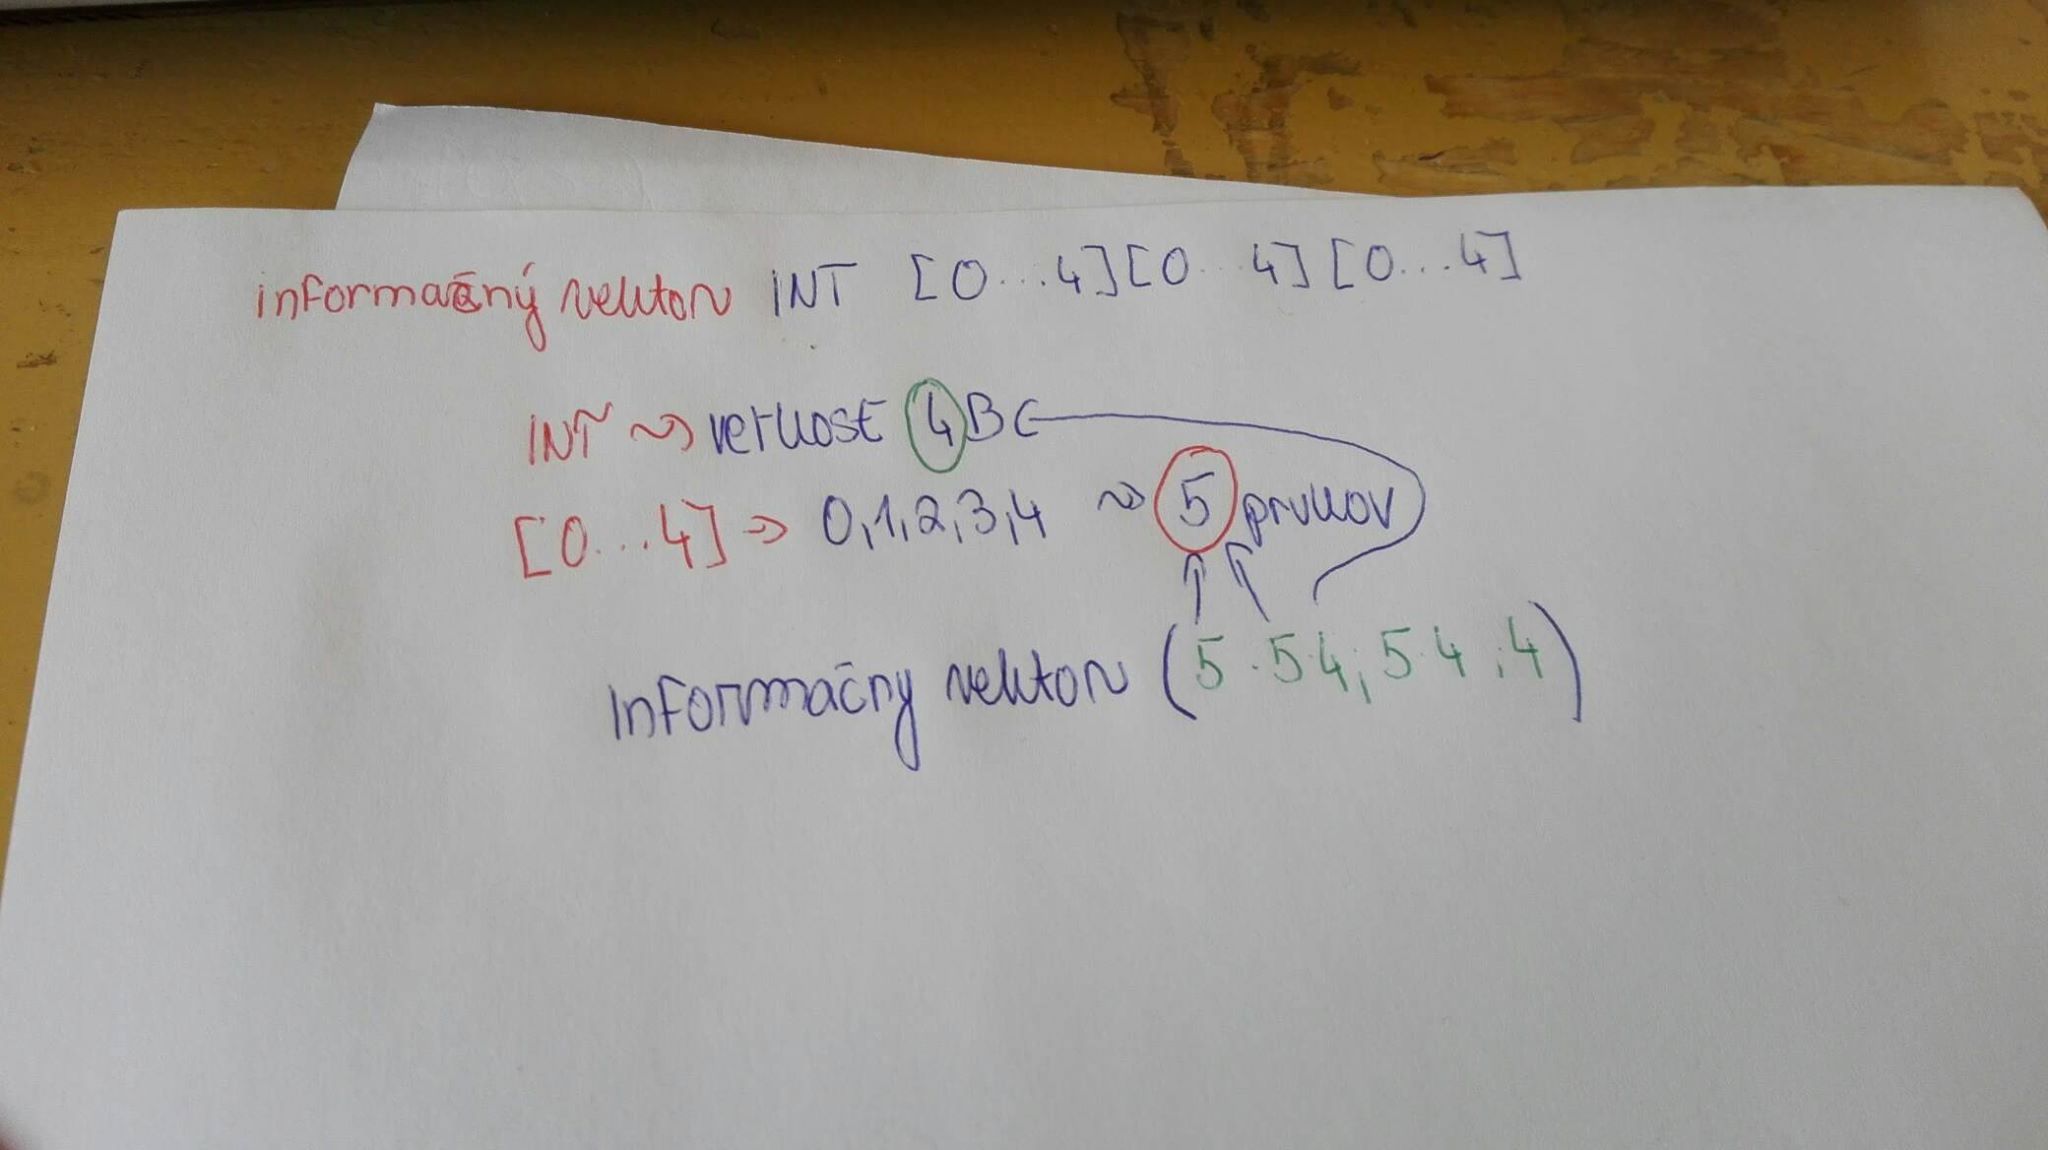 informačný vektor INT [0...4][0...4][0...4]
INT ⇝ veľkosť 4B
[0...4] → 0,1,2,3,4 ⇝ 5 prvkov
Informačný vektor (5·5·4;5·4;4)